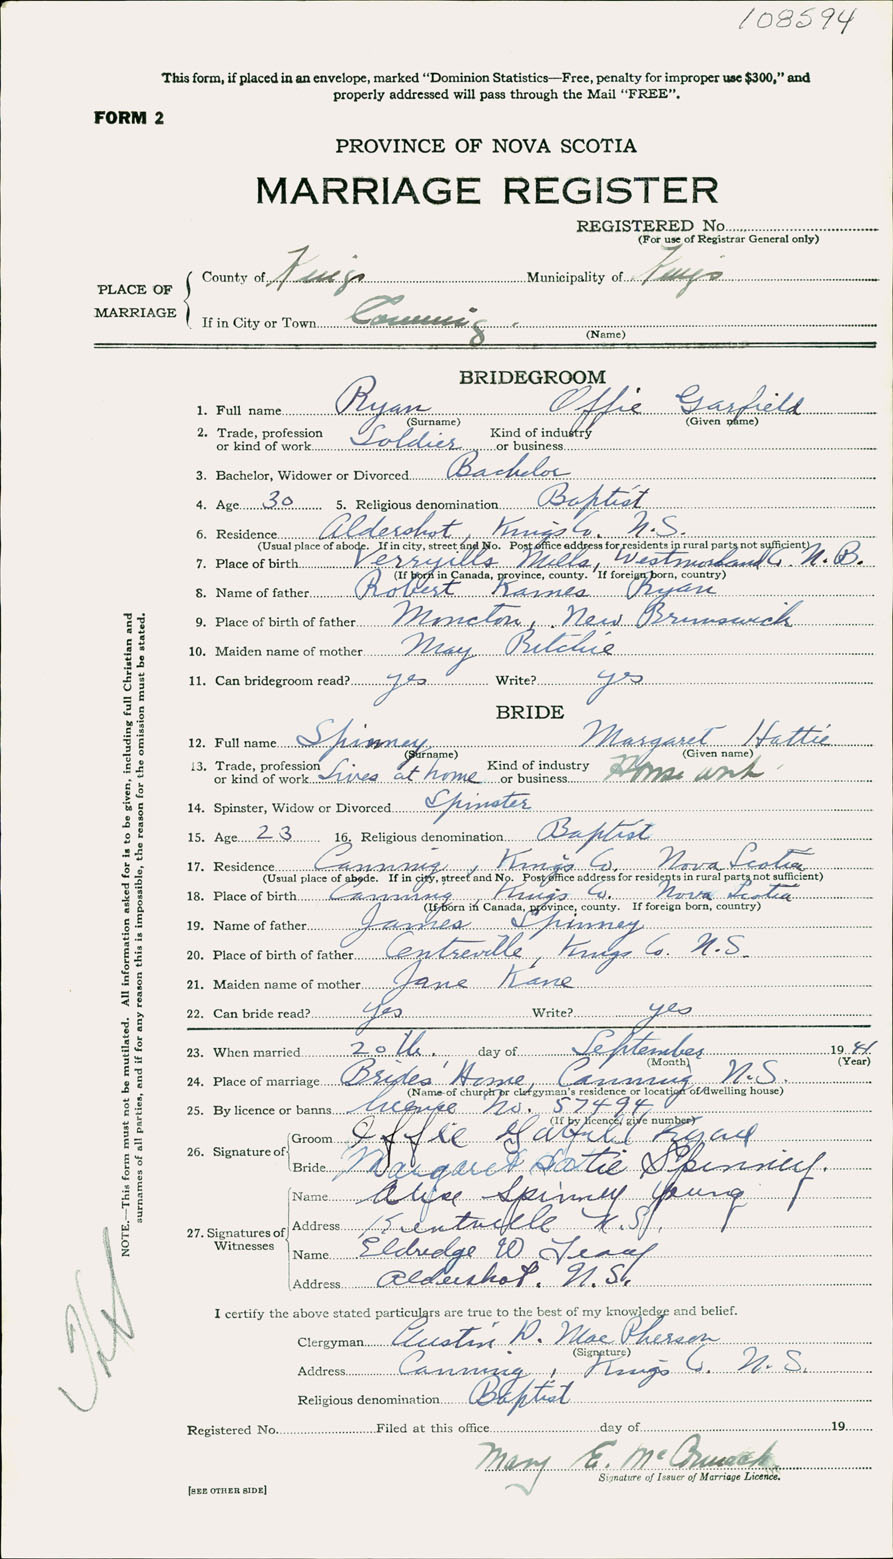 108594
This form, if placed in an envelope, marked “Dominion Statistics—Free, penalty for improper use $300,” and
properly addressed will pass through the Mail “FREE”.
FORM 2
PROVINCE OF NOVA SCOTIA
MARRIAGE REGISTER
REGISTERED No.
(For use of Registrar General only)
PLACE OF MARRIAGE
County of Kings Municipality of Kings
If in City or Town Canning
(Name)
BRIDEGROOM
1. Full name Ryan Offie Garfield
(Surname) (Given name)
2. Trade, profession or kind of work Soldier Kind of industry or business
3. Bachelor, Widower or Divorced Bachelor
4. Age 30 5. Religious denomination Baptist
6. Residence Aldershot, Kings Co. N.S.
(Usual place of abode. If in city, street and No. Post office address for residents in rural parts not sufficient)
7. Place of birth Mills, Westmorland Co. N.B.
(If born in Canada, province, county. If foreign born, country)
8. Name of father Robert Ryan
9. Place of birth of father Moncton, New Brunswick
10. Maiden name of mother May Ritchie
11. Can bridegroom read? yes Write? yes
BRIDE
12. Full name Spinney Margaret Hattie
(Surname) (Given name)
13. Trade, profession or kind of work Lives at home Kind of industry or business House work
14. Spinster, Widow or Divorced Spinster
15. Age 23 16. Religious denomination Baptist
17. Residence Canning, Kings Co. Nova Scotia
(Usual place of abode. If in city, street and No. Post office address for residents in rural parts not sufficient)
18. Place of birth Canning, Kings Co. Nova Scotia
(If born in Canada, province, county. If foreign born, country)
19. Name of father James Spinney
20. Place of birth of father Centreville, Kings Co. N.S.
21. Maiden name of mother Jane Kane
22. Can bride read? yes Write? yes
23. When married 20th. day of September 19 41
(Month) (Year)
24. Place of marriage Brides' Home, Canning N.S.
(Name of church or clergyman's residence or location of dwelling house)
25. By licence or banns license No. 57494
(If by licence, give number)
26. Signature of
Groom Offie Ryan
Bride Margaret Hattie Spinney.
27. Signatures of Witnesses
Name Alice Spinney Young
Address Kentville N.S.
Name Eldredge W
Address Aldershot. N.S.
I certify the above stated particulars are true to the best of my knowledge and belief.
Clergyman Austin D. MacPherson
(Signature)
Address Canning, Kings Co. N.S.
Religious denomination Baptist
Registered No. Filed at this office day of 19
Mary E. McCormack
Signature of Issuer of Marriage Licence.
[SEE OTHER SIDE]
NOTE.—This form must not be mutilated. All information asked for is to be given, including full Christian and
surnames of all parties, and if for any reason this is impossible, the reason for the omission must be stated.